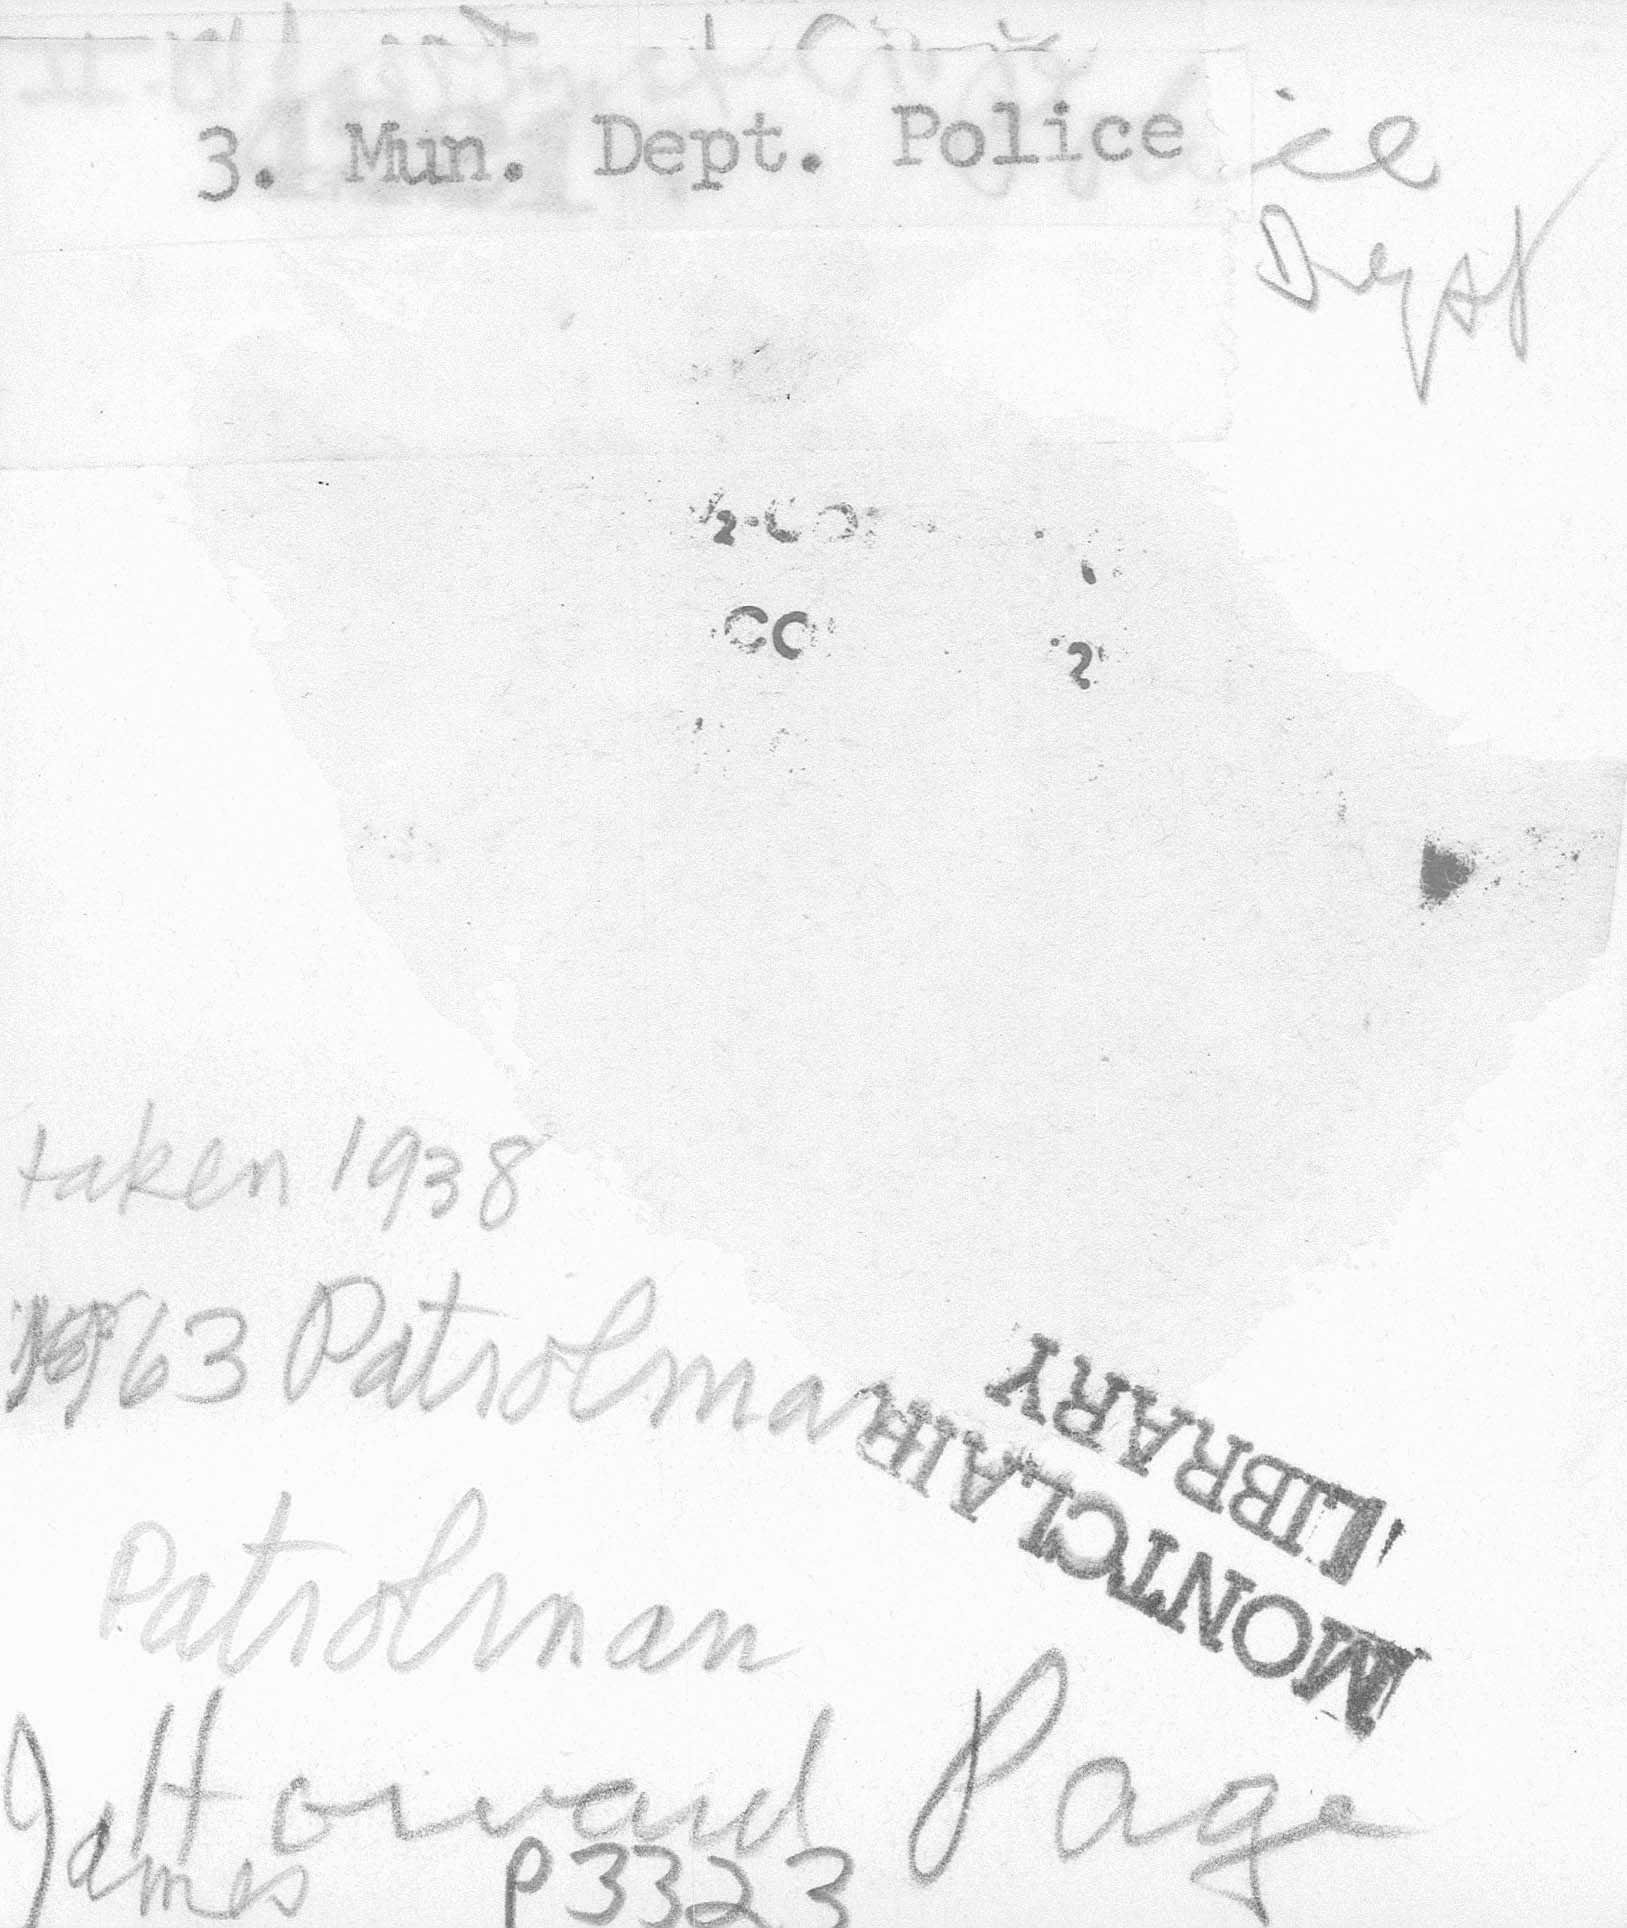 3. Mun. Dept. Police
ice
Dept
½-CO
CO
2
taken 1938
1963 Patrolman
MONTCLAIR
LIBRARY
Patrolman
J. Howard Page
James
P3323